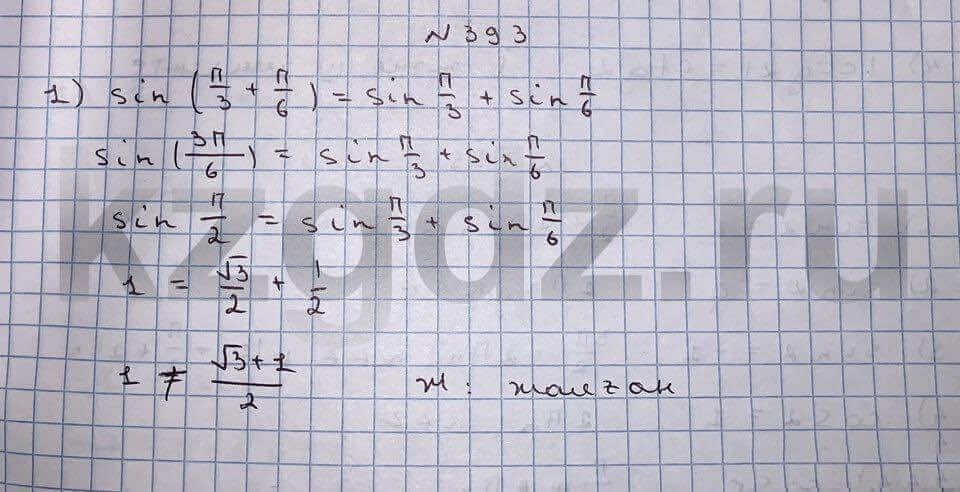 № 393
1) sin (π/3 + π/6) = sin π/3 + sin π/6
sin (3π/6) = sin π/3 + sin π/6
sin π/2 = sin π/3 + sin π/6
1 = √3/2 + 1/2
1 ≠ (√3 + 1)/2 Ж: жалған
kzgdz.ru